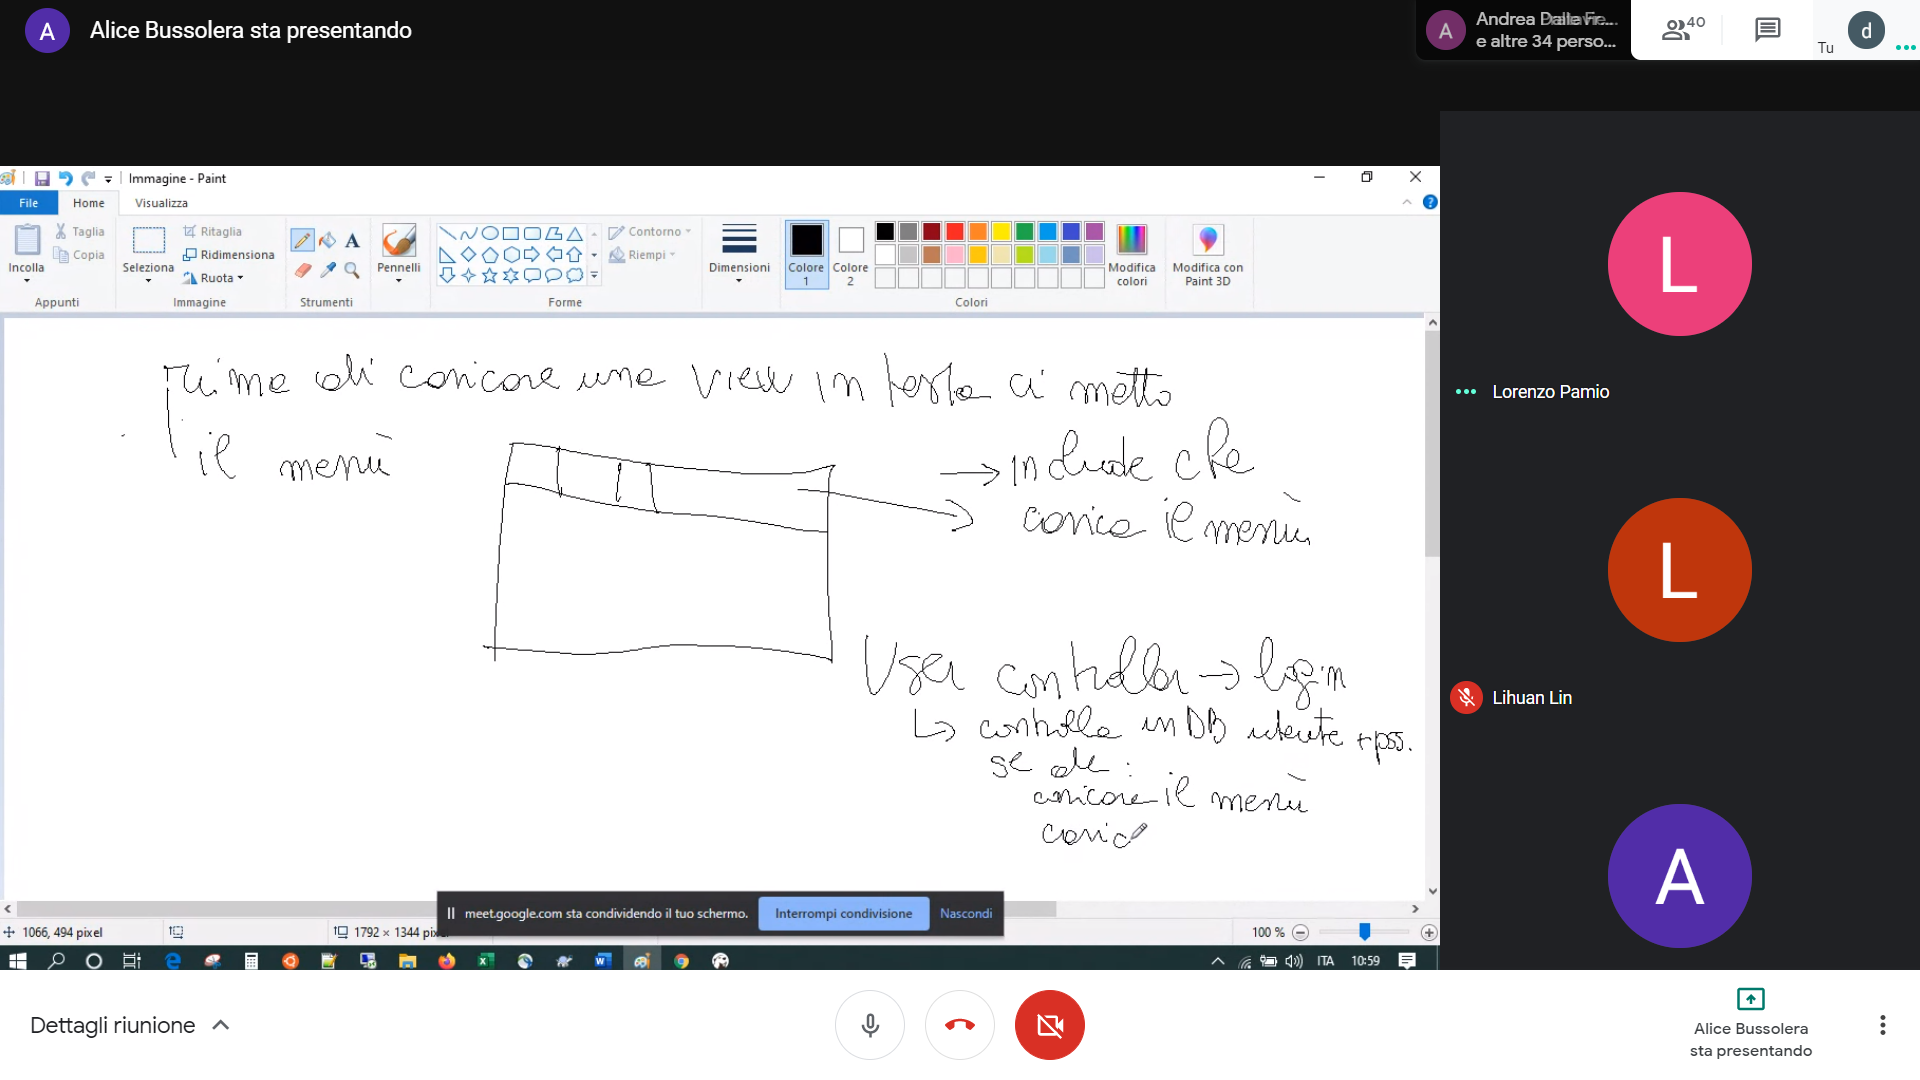 A
Alice Bussolera sta presentando
A
Andrea Dalla Fr...
e altre 34 perso...
40
Tu
d
Immagine - Paint
File
Home
Visualizza
Incolla
Taglia
Copia
Appunti
Seleziona
Ritaglia
Ridimensiona
Ruota
Immagine
A
Strumenti
Pennelli
Contorno
Riempi
Forme
Dimensioni
Colore
1
Colore
2
Modifica
colori
Colori
Modifica con
Paint 3D
Prima di caricare una view in testa ci metto
il menù
→ include che
carica il menù
User controller → login
↳ controlla in DB utente + pss.
se ok :
caricare il menù
caric
meet.google.com sta condividendo il tuo schermo.
Interrompi condivisione
Nascondi
1066, 494 pixel
1792 × 1344 pix
100 %
ITA
10:59
L
Lorenzo Pamio
L
Lihuan Lin
A
Dettagli riunione
Alice Bussolera
sta presentando